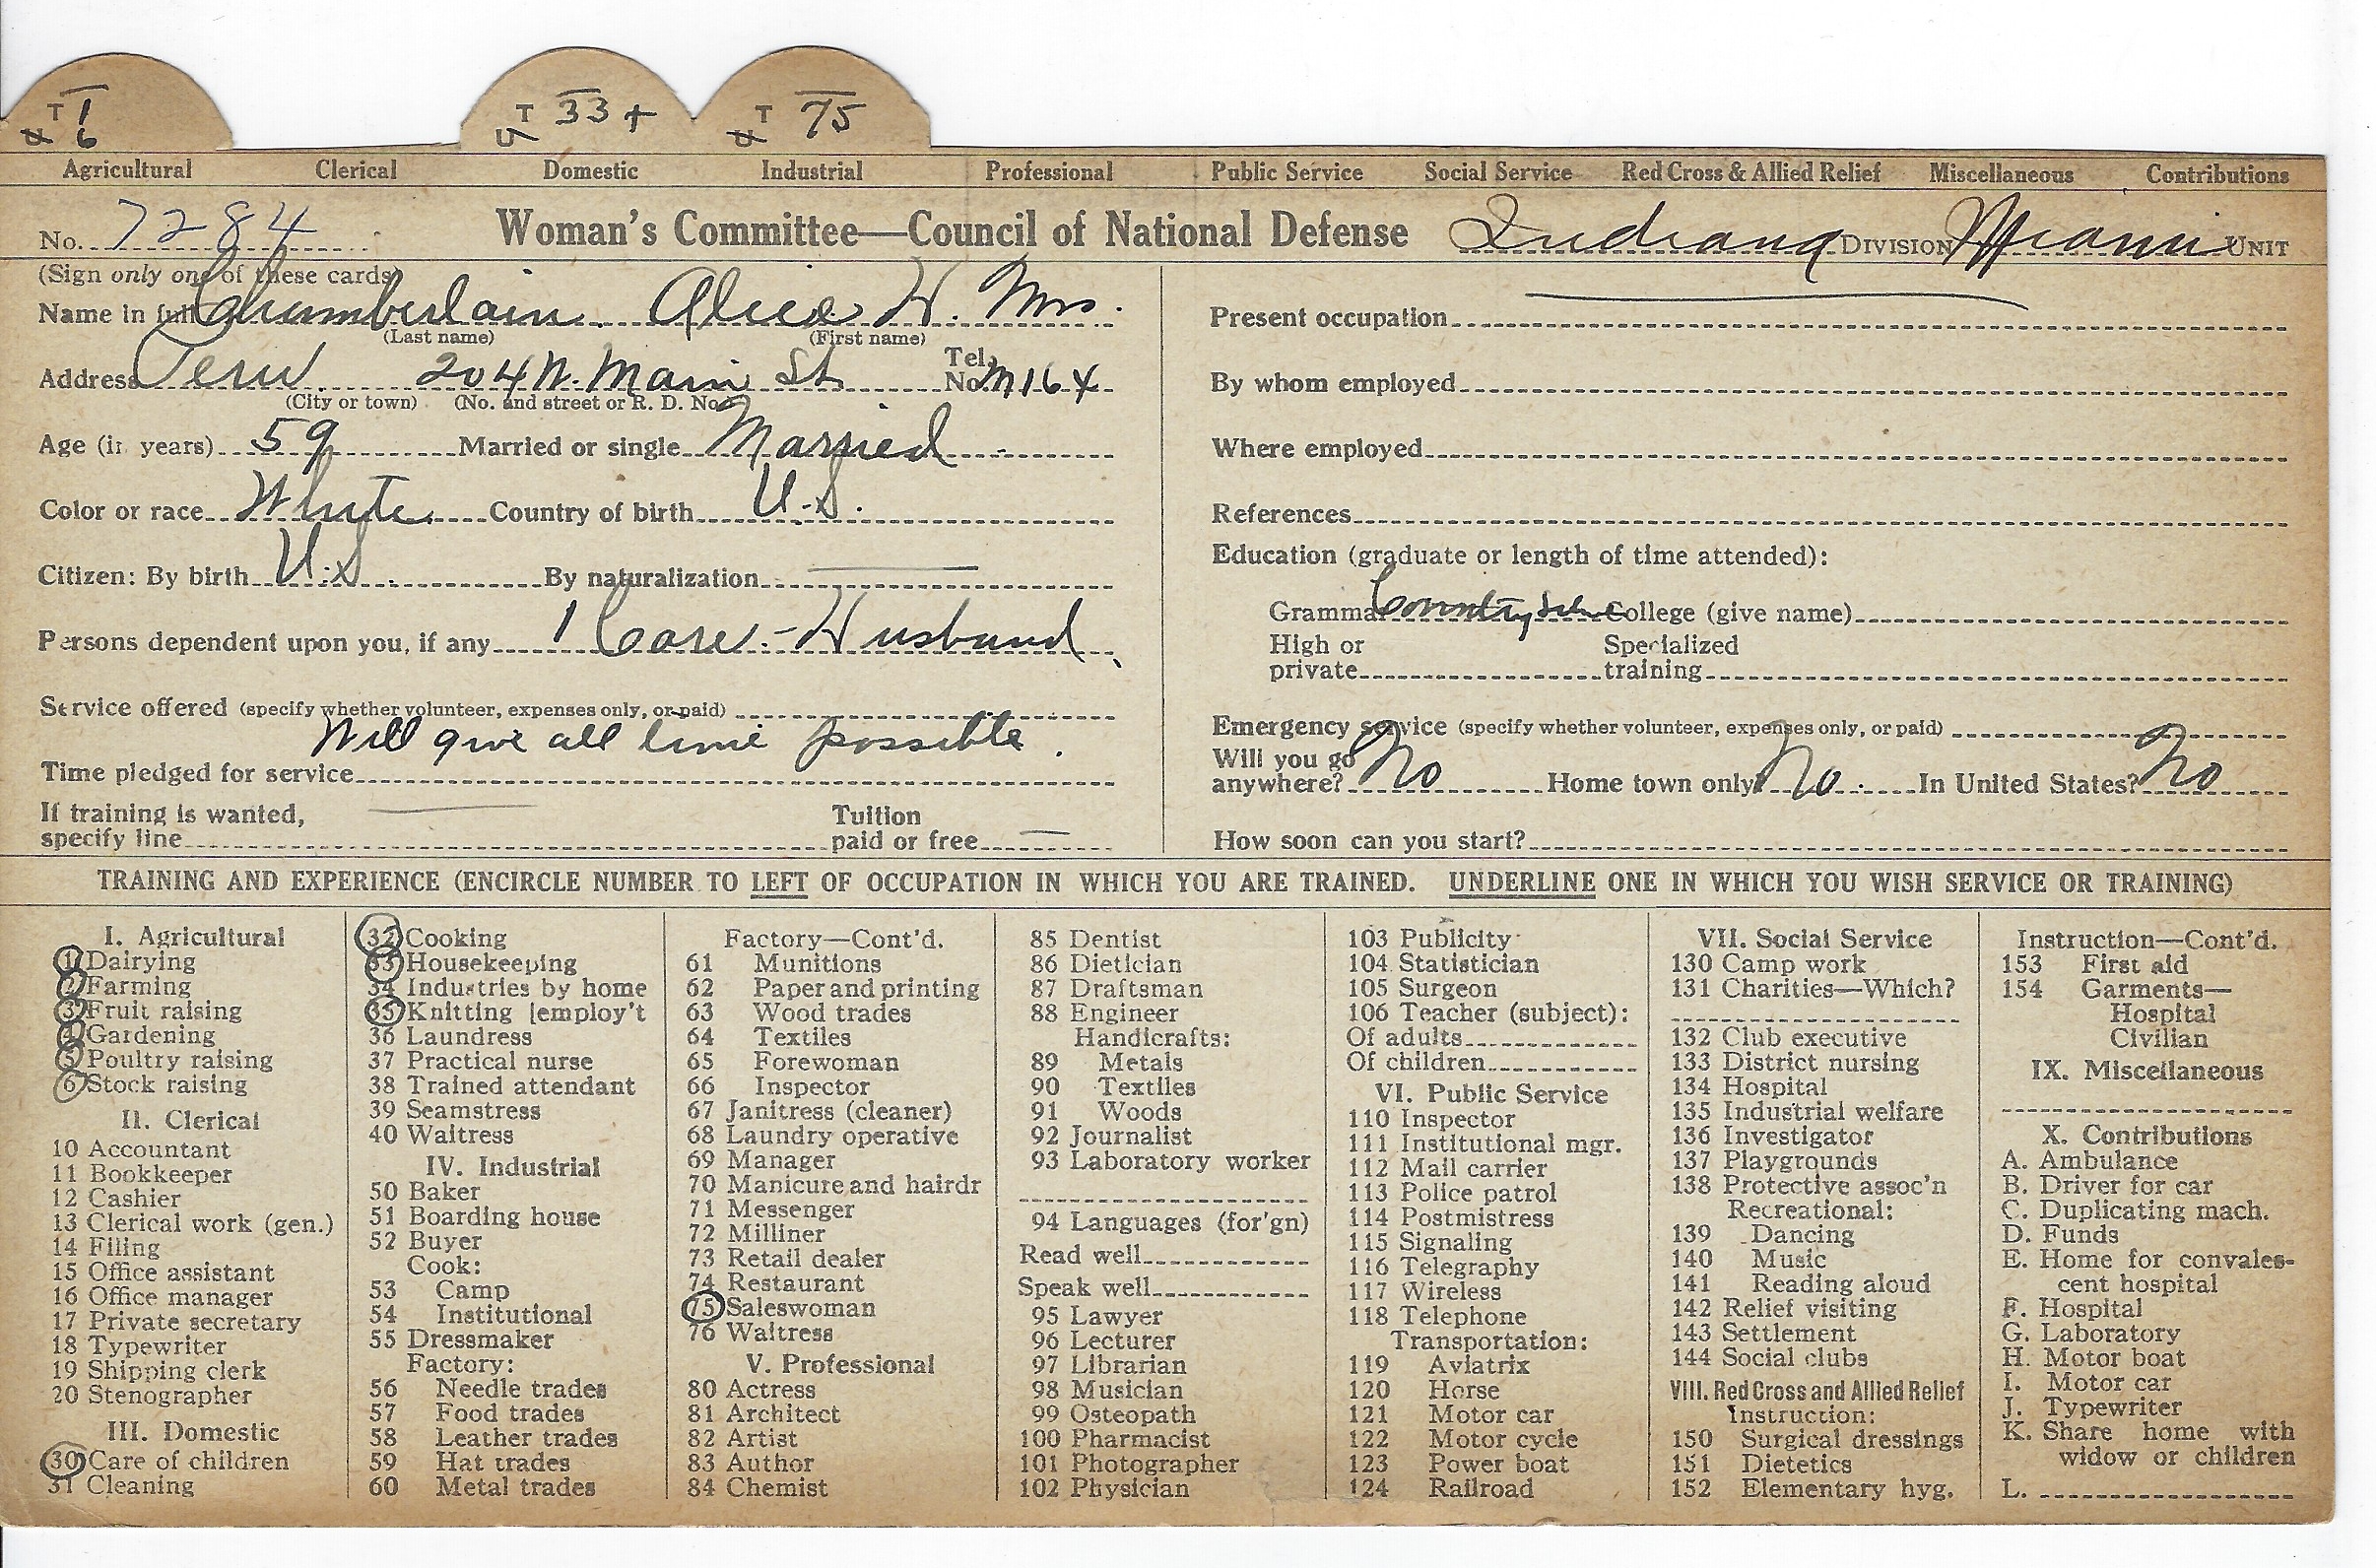 T 1 T 33+ T 75
6
Agricultural Clerical Domestic Industrial Professional Public Service Social Service Red Cross & Allied Relief Miscellaneous Contributions
No. 7284 Woman's Committee—Council of National Defense Indiana DIVISION Miami UNIT
(Sign only one of these cards)
Name in full Chamberlain Alice W. Mrs.
(Last name) (First name)
Address Peru 204 N. Main St. Tel. No. M164
(City or town) (No. and street or R. D. No.)
Age (in years) 59 Married or single Married
Color or race White Country of birth U.S.
Citizen: By birth U.S. By naturalization —
Persons dependent upon you, if any 1 Care - Husband
Service offered (specify whether volunteer, expenses only, or paid)
Will give all time possible.
Time pledged for service
If training is wanted,
specify line — Tuition paid or free —
Present occupation
By whom employed
Where employed
References
Education (graduate or length of time attended):
Grammar Country College (give name)
High or private Specialized training
Emergency service (specify whether volunteer, expenses only, or paid)
Will you go anywhere? No Home town only? No. In United States? No
How soon can you start?
TRAINING AND EXPERIENCE (ENCIRCLE NUMBER TO LEFT OF OCCUPATION IN WHICH YOU ARE TRAINED. UNDERLINE ONE IN WHICH YOU WISH SERVICE OR TRAINING)
I. Agricultural
1 Dairying
2 Farming
3 Fruit raising
4 Gardening
5 Poultry raising
6 Stock raising
II. Clerical
10 Accountant
11 Bookkeeper
12 Cashier
13 Clerical work (gen.)
14 Filing
15 Office assistant
16 Office manager
17 Private secretary
18 Typewriter
19 Shipping clerk
20 Stenographer
III. Domestic
30 Care of children
31 Cleaning
32 Cooking
33 Housekeeping
34 Industries by home
35 Knitting [employ't
36 Laundress
37 Practical nurse
38 Trained attendant
39 Seamstress
40 Waitress
IV. Industrial
50 Baker
51 Boarding house
52 Buyer
Cook:
53 Camp
54 Institutional
55 Dressmaker
Factory:
56 Needle trades
57 Food trades
58 Leather trades
59 Hat trades
60 Metal trades
Factory—Cont'd.
61 Munitions
62 Paper and printing
63 Wood trades
64 Textiles
65 Forewoman
66 Inspector
67 Janitress (cleaner)
68 Laundry operative
69 Manager
70 Manicure and hairdr
71 Messenger
72 Milliner
73 Retail dealer
74 Restaurant
75 Saleswoman
76 Waitress
V. Professional
80 Actress
81 Architect
82 Artist
83 Author
84 Chemist
85 Dentist
86 Dietician
87 Draftsman
88 Engineer
Handicrafts:
89 Metals
90 Textiles
91 Woods
92 Journalist
93 Laboratory worker
94 Languages (for'gn)
Read well
Speak well
95 Lawyer
96 Lecturer
97 Librarian
98 Musician
99 Osteopath
100 Pharmacist
101 Photographer
102 Physician
103 Publicity
104 Statistician
105 Surgeon
106 Teacher (subject):
Of adults
Of children
VI. Public Service
110 Inspector
111 Institutional mgr.
112 Mail carrier
113 Police patrol
114 Postmistress
115 Signaling
116 Telegraphy
117 Wireless
118 Telephone
Transportation:
119 Aviatrix
120 Horse
121 Motor car
122 Motor cycle
123 Power boat
124 Railroad
VII. Social Service
130 Camp work
131 Charities—Which?
132 Club executive
133 District nursing
134 Hospital
135 Industrial welfare
136 Investigator
137 Playgrounds
138 Protective assoc'n
Recreational:
139 Dancing
140 Music
141 Reading aloud
142 Relief visiting
143 Settlement
144 Social clubs
VIII. Red Cross and Allied Relief
Instruction:
150 Surgical dressings
151 Dietetics
152 Elementary hyg.
Instruction—Cont'd.
153 First aid
154 Garments—
Hospital
Civilian
IX. Miscellaneous
X. Contributions
A. Ambulance
B. Driver for car
C. Duplicating mach.
D. Funds
E. Home for convales-
cent hospital
F. Hospital
G. Laboratory
H. Motor boat
I. Motor car
J. Typewriter
K. Share home with
widow or children
L.